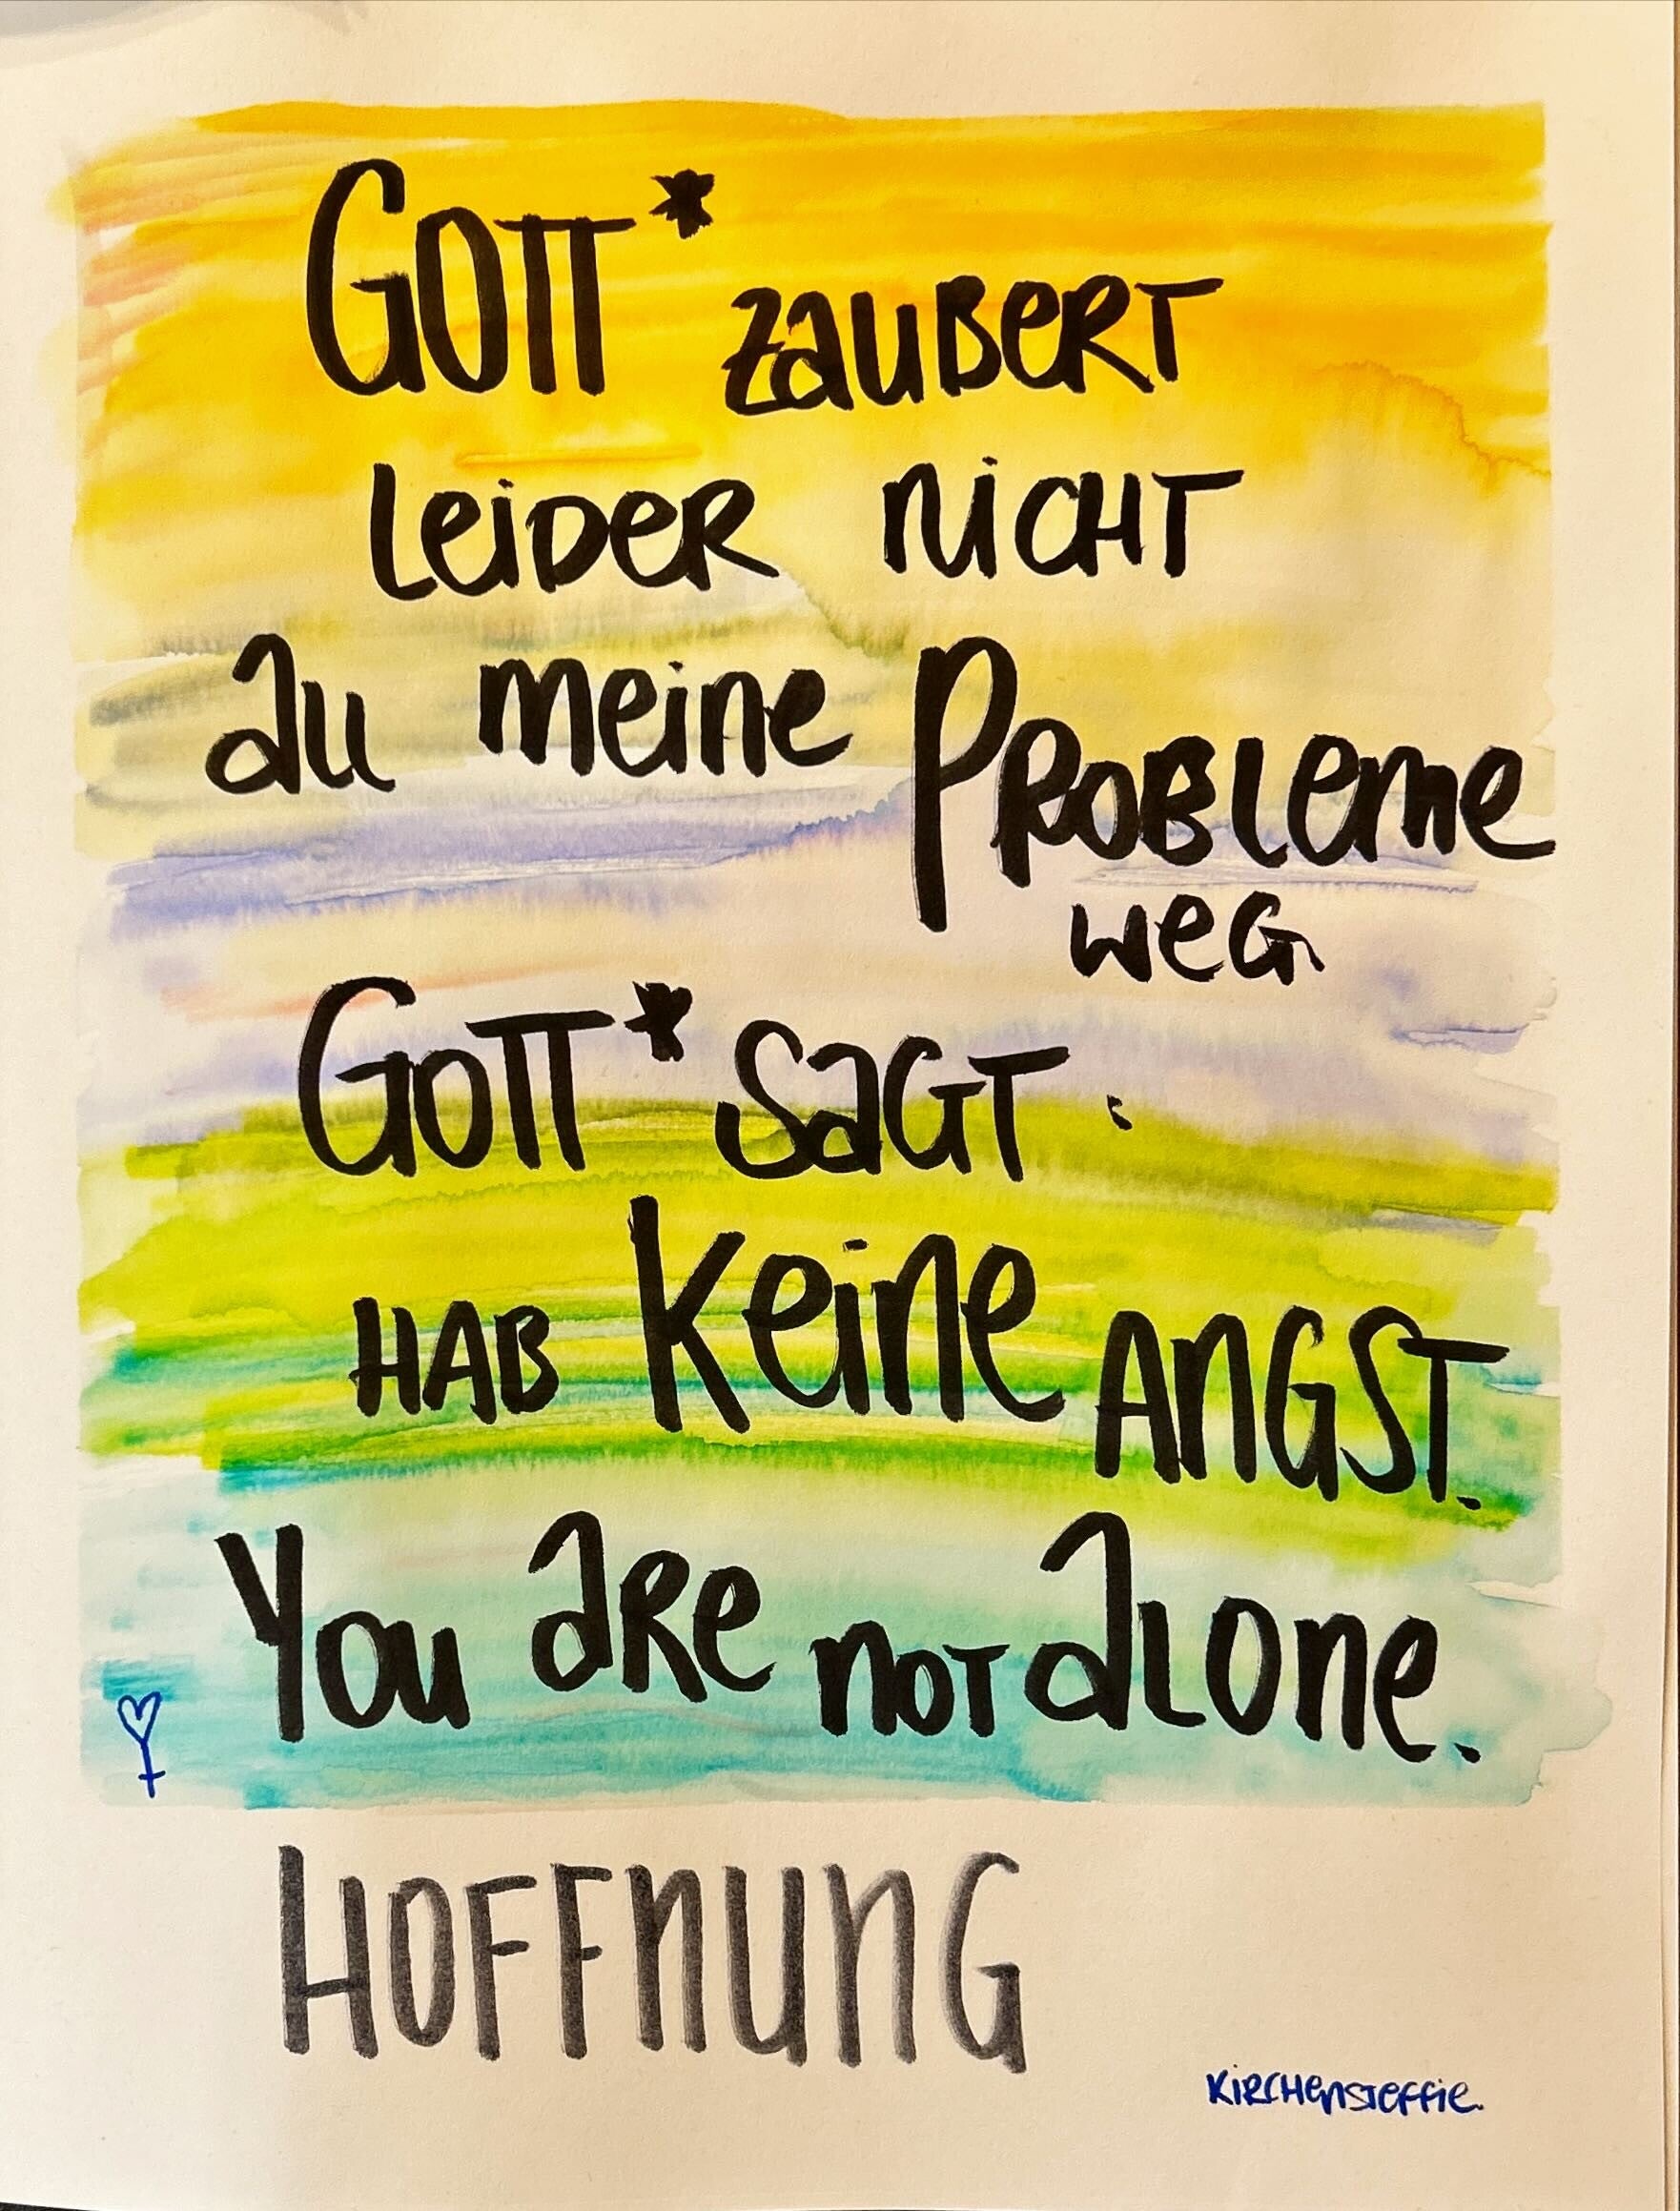 GOTT* zaubert
Leider nicht
all meine Probleme
weg.
GOTT* sagt:
HAB Keine Angst.
You are not alone.
HOFFNUNG
Kirchensteffie.